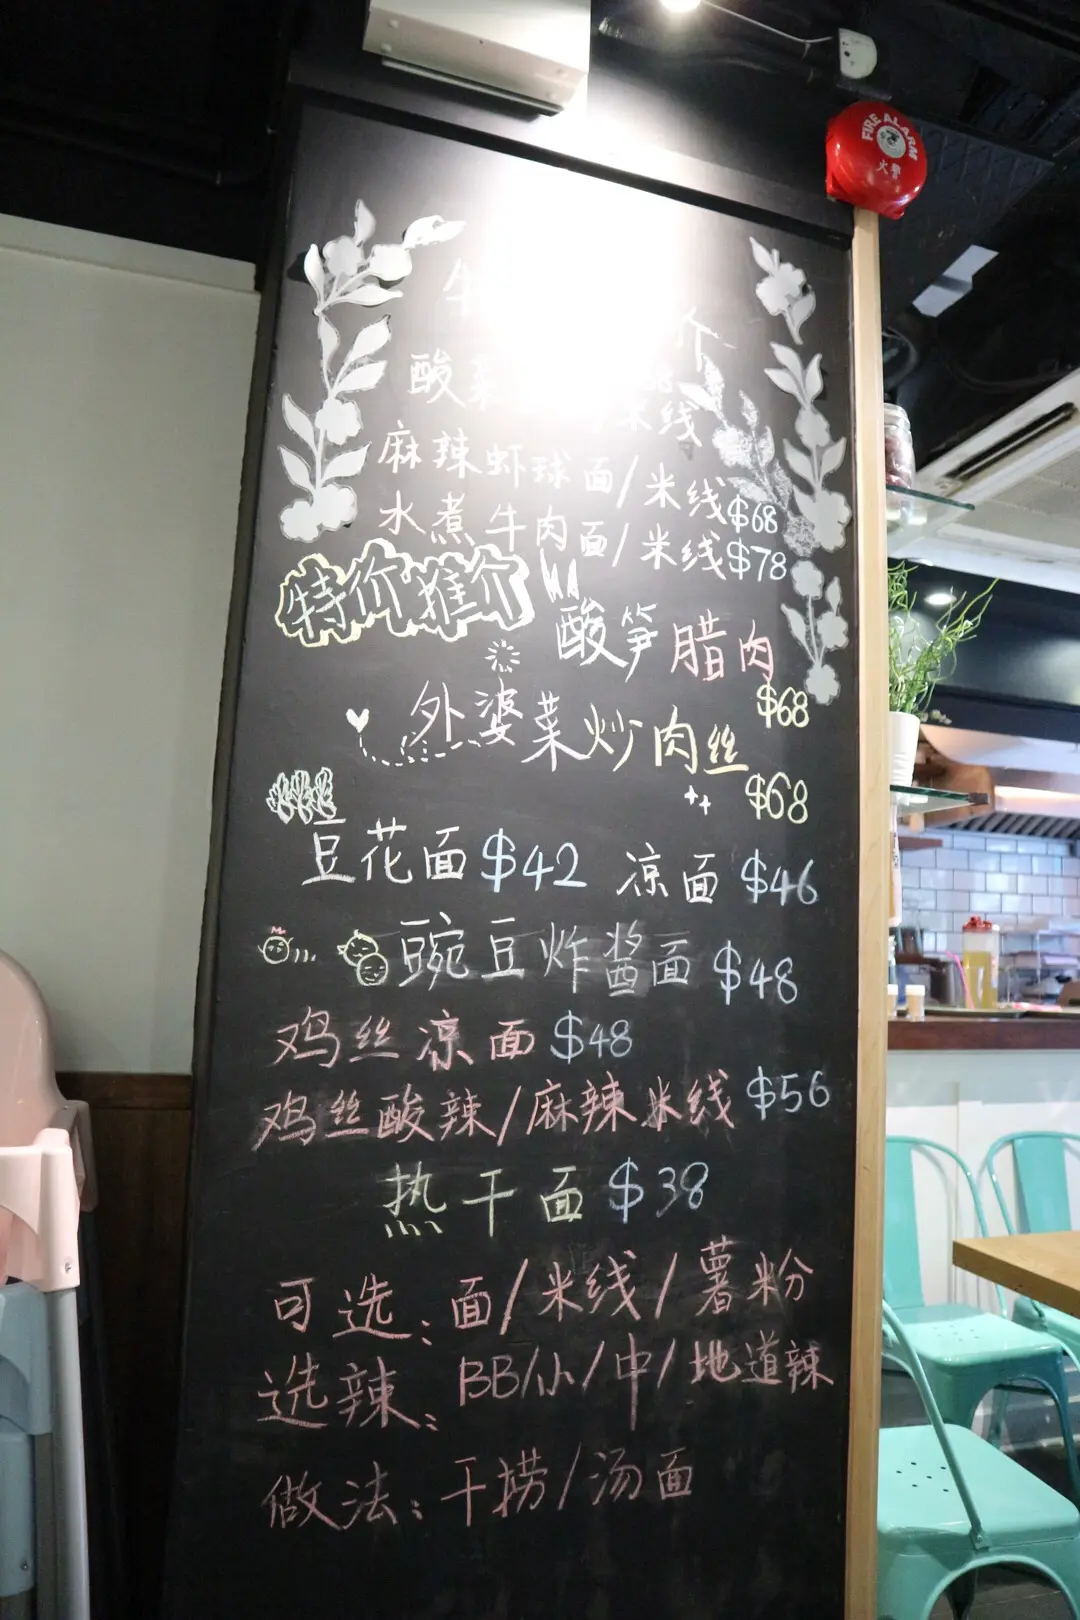 FIRE ALARM
火警
介
酸菜
米线
麻辣虾球面/米线$68
水煮牛肉面/米线$78
特价推介
酸笋腊肉
$68
外婆菜炒肉丝
$68
豆花面$42 凉面 $46
豌豆炸酱面 $48
鸡丝凉面 $48
鸡丝酸辣/麻辣米线 $56
热干面 $38
可选：面/米线/薯粉
选辣：BB/小/中/地道辣
做法：干捞/汤面